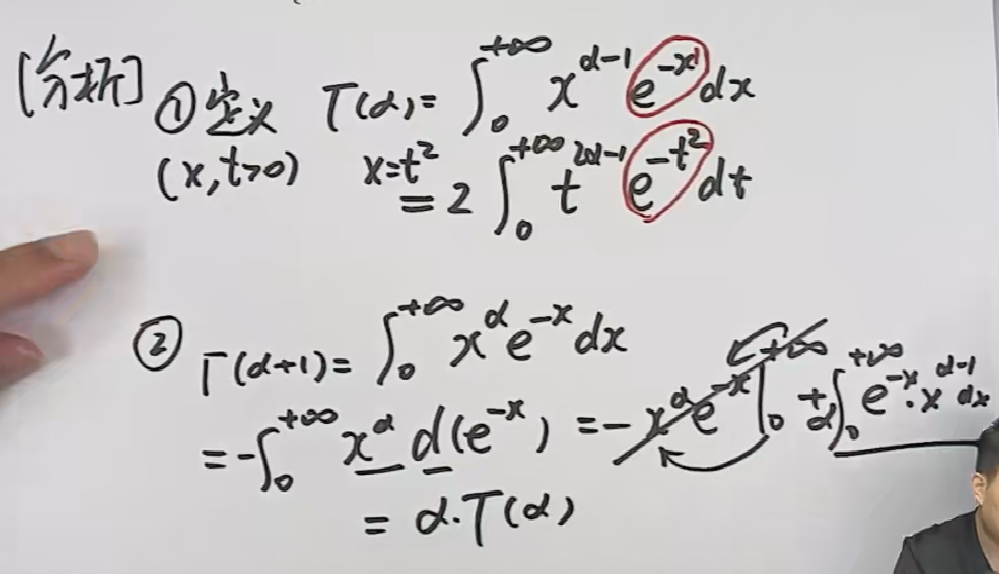 [分析] ① 定义 Γ(α) = ∫₀^{+∞} x^{α-1} e^{-x} dx
(x, t>0) x=t² = 2 ∫₀^{+∞} t^{2α-1} e^{-t²} dt
② Γ(α+1) = ∫₀^{+∞} x^α e^{-x} dx
= -∫₀^{+∞} x^α d(e^{-x}) = -x^α e^{-x} |₀^{+∞} + α∫₀^{+∞} e^{-x}·x^{α-1} dx
= α·Γ(α)